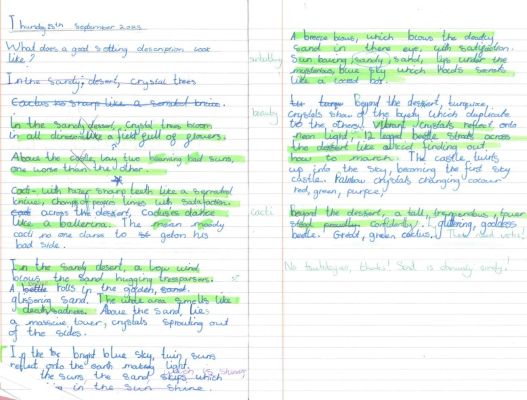 Thursday 28th September 2023
What does a good setting description look
like?
In the sandy; desert, crystal trees
Cactus as sharp like a serrated knive.
In the sandy desert, Crystal trees bloom
In all dimension like a field full of flowers.
Above the castle, lay two beaming bad suns,
one worse than the other.
Cacti with razor sharp teeth like a serrated
knive, chomps of peoples limbs with satisfaction.
across the dessert, Cactuses dance
like a ballerina. The mean moody
cacti no one dares to get on his
bad side.
I un the sandy desert, a low wind
blows the sand hugging tresspassors.
A beetle rolls in the golden, sand.
glistening sand. The whole area smells like
death/sadness. Above the sand, lies
a massive tower, crystals sprouting out
of the sides.
In the bright blue sky, twin suns
reflect onto the earth making light.
which is shiny
the suns the sand skys which
in the sun shine.
A breeze blows, which blows the deadly
sand in there eye, with satisfaction.
Sun baring sandy; sand, lays under the
mysterious, blue sky which holds secrets
like a locked box.
beyond the dessert, turquoise,
beauty
crystals show of the beauty which duplicate
to the others. Vibrant crystals reflect onto
neon light, 12 legged beetle struts across
the dessert like a kid finding out
how to march. The castle, twirls
up into the sky, becoming the first sky
castle. Rainbow crystals changing colour
red, green, purple,
cacti
beyond the dessert, a tall, tremendous, tower
stood proudly confidently. glittering, goddess
beetle. Great, green, cactus. These need verbs!
No tautologies, thanks! Sand is obviously sandy!